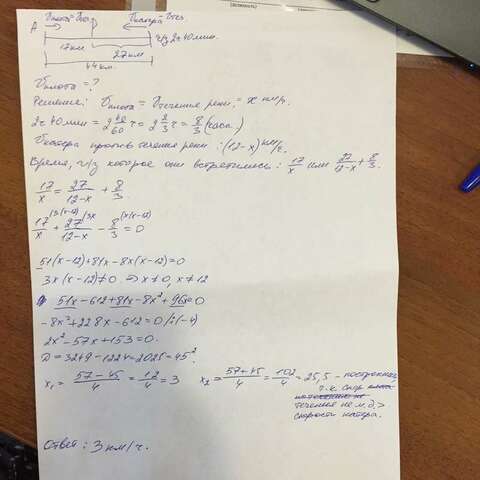 Vплота = Vтеч. Vкатера - Vтеч.
A
17км 27км ч/з 2ч 40 мин.
44 км.
Vплота = ?
Решение: Vплота = Vтечения реки, = x км/ч.
2ч 40мин = 2 40/60 ч = 2 2/3 ч = 8/3 (часа.)
Vкатера против течения реки: (12-x) км/ч.
Время, ч/з которое они встретились: 17/x или 27/12-x + 8/3.
17/x = 27/12-x + 8/3.
17/x /3(x-12) + 27/12-x /3x - 8/3 /x(x-12) = 0
51(x-12)+81x-8x(x-12)=0
3x(x-12)≠0. ⇒ x≠0, x≠12
51x-612+81x-8x²+96x=0
-8x²+228x-612=0 /:(-4)
2x²-57x+153=0.
D=3249-1224=2025=45².
x₁ = 57-45/4 = 12/4 = 3 x₂ = 57+45/4 = 102/4 = 25,5 - посторонний,
т.к. скор.
течения не м.б. >
скорости катера.
Ответ: 3 км/ч.